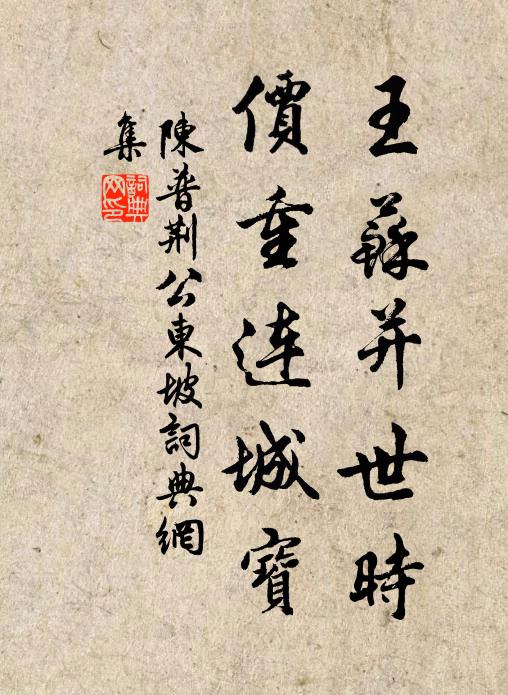 王蘇并世時
價重連城寶
陳普荆公東坡詞典網
集
詞典
网印